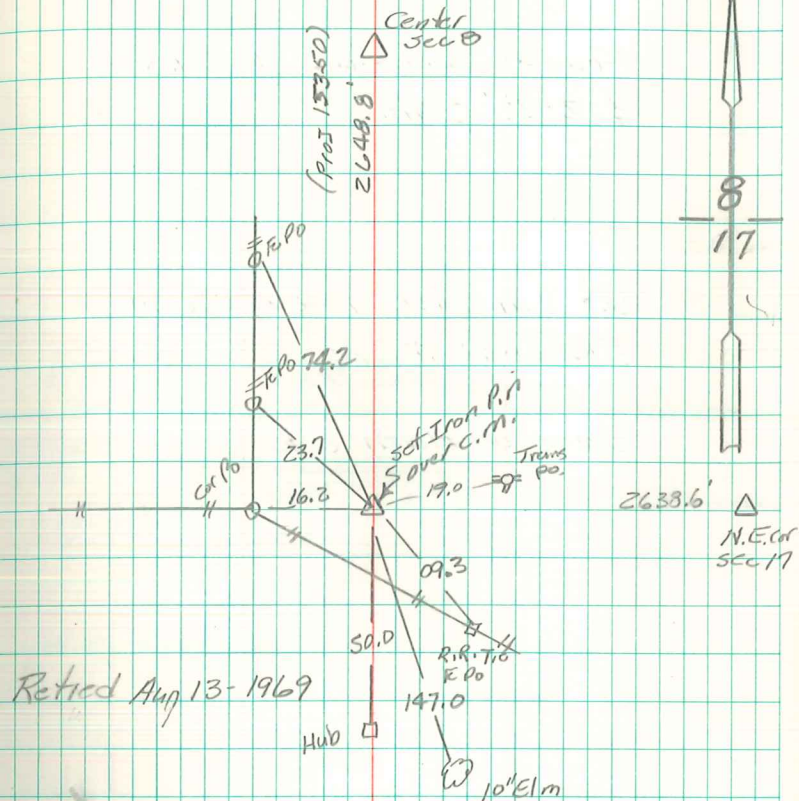 Center
Sec 8
(Proj 15350)
2648.8'
8
17
Fc Po
74.2
Fc Po
23.7
Set Iron Pin
over C.M.
Trans
po.
Cor Po
16.2
19.0
2638.6'
N.E. Cor
Sec 17
09.3
50.0
R.R. Tie
Fc Po
Retied Aug 13-1969
147.0
Hub
10" Elm